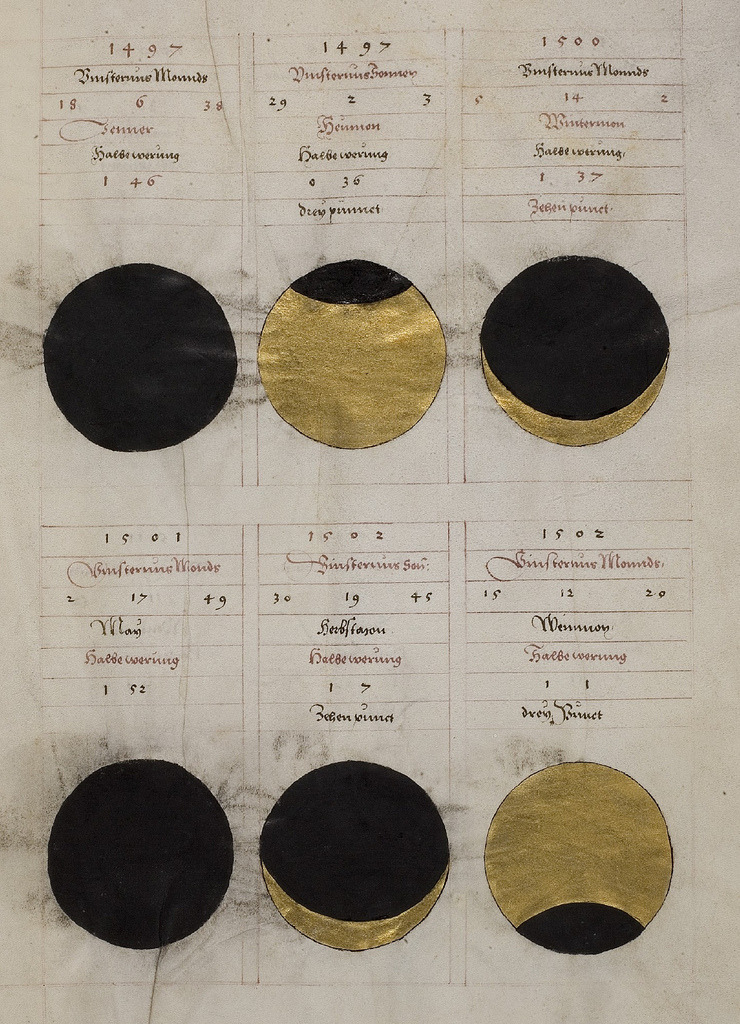 1 4 9 7
Vinsternüs Monnds
18 6 38
Jenner
Halbe werung
1 46
1 4 9 7
Vinsternüs Sonnen
29 2 3
Heümon
Halbe werung
0 36
drey punnct
1 5 0 0
Vinsternüs Monnds
5 14 2
Wintermon
Halbe werung
1 37
Zehen punct
1 5 0 1
Vinsternüs Monds
2 17 49
May
Halbe werung
1 52
1 5 0 2
Vinsternüs Son:
30 19 45
Herbstmon
Halbe werung
1 7
Zehen punct
1 5 0 2
Vinsternüs Monnds
15 12 20
Weinmon
Halbe werung
1 1
drey Punct